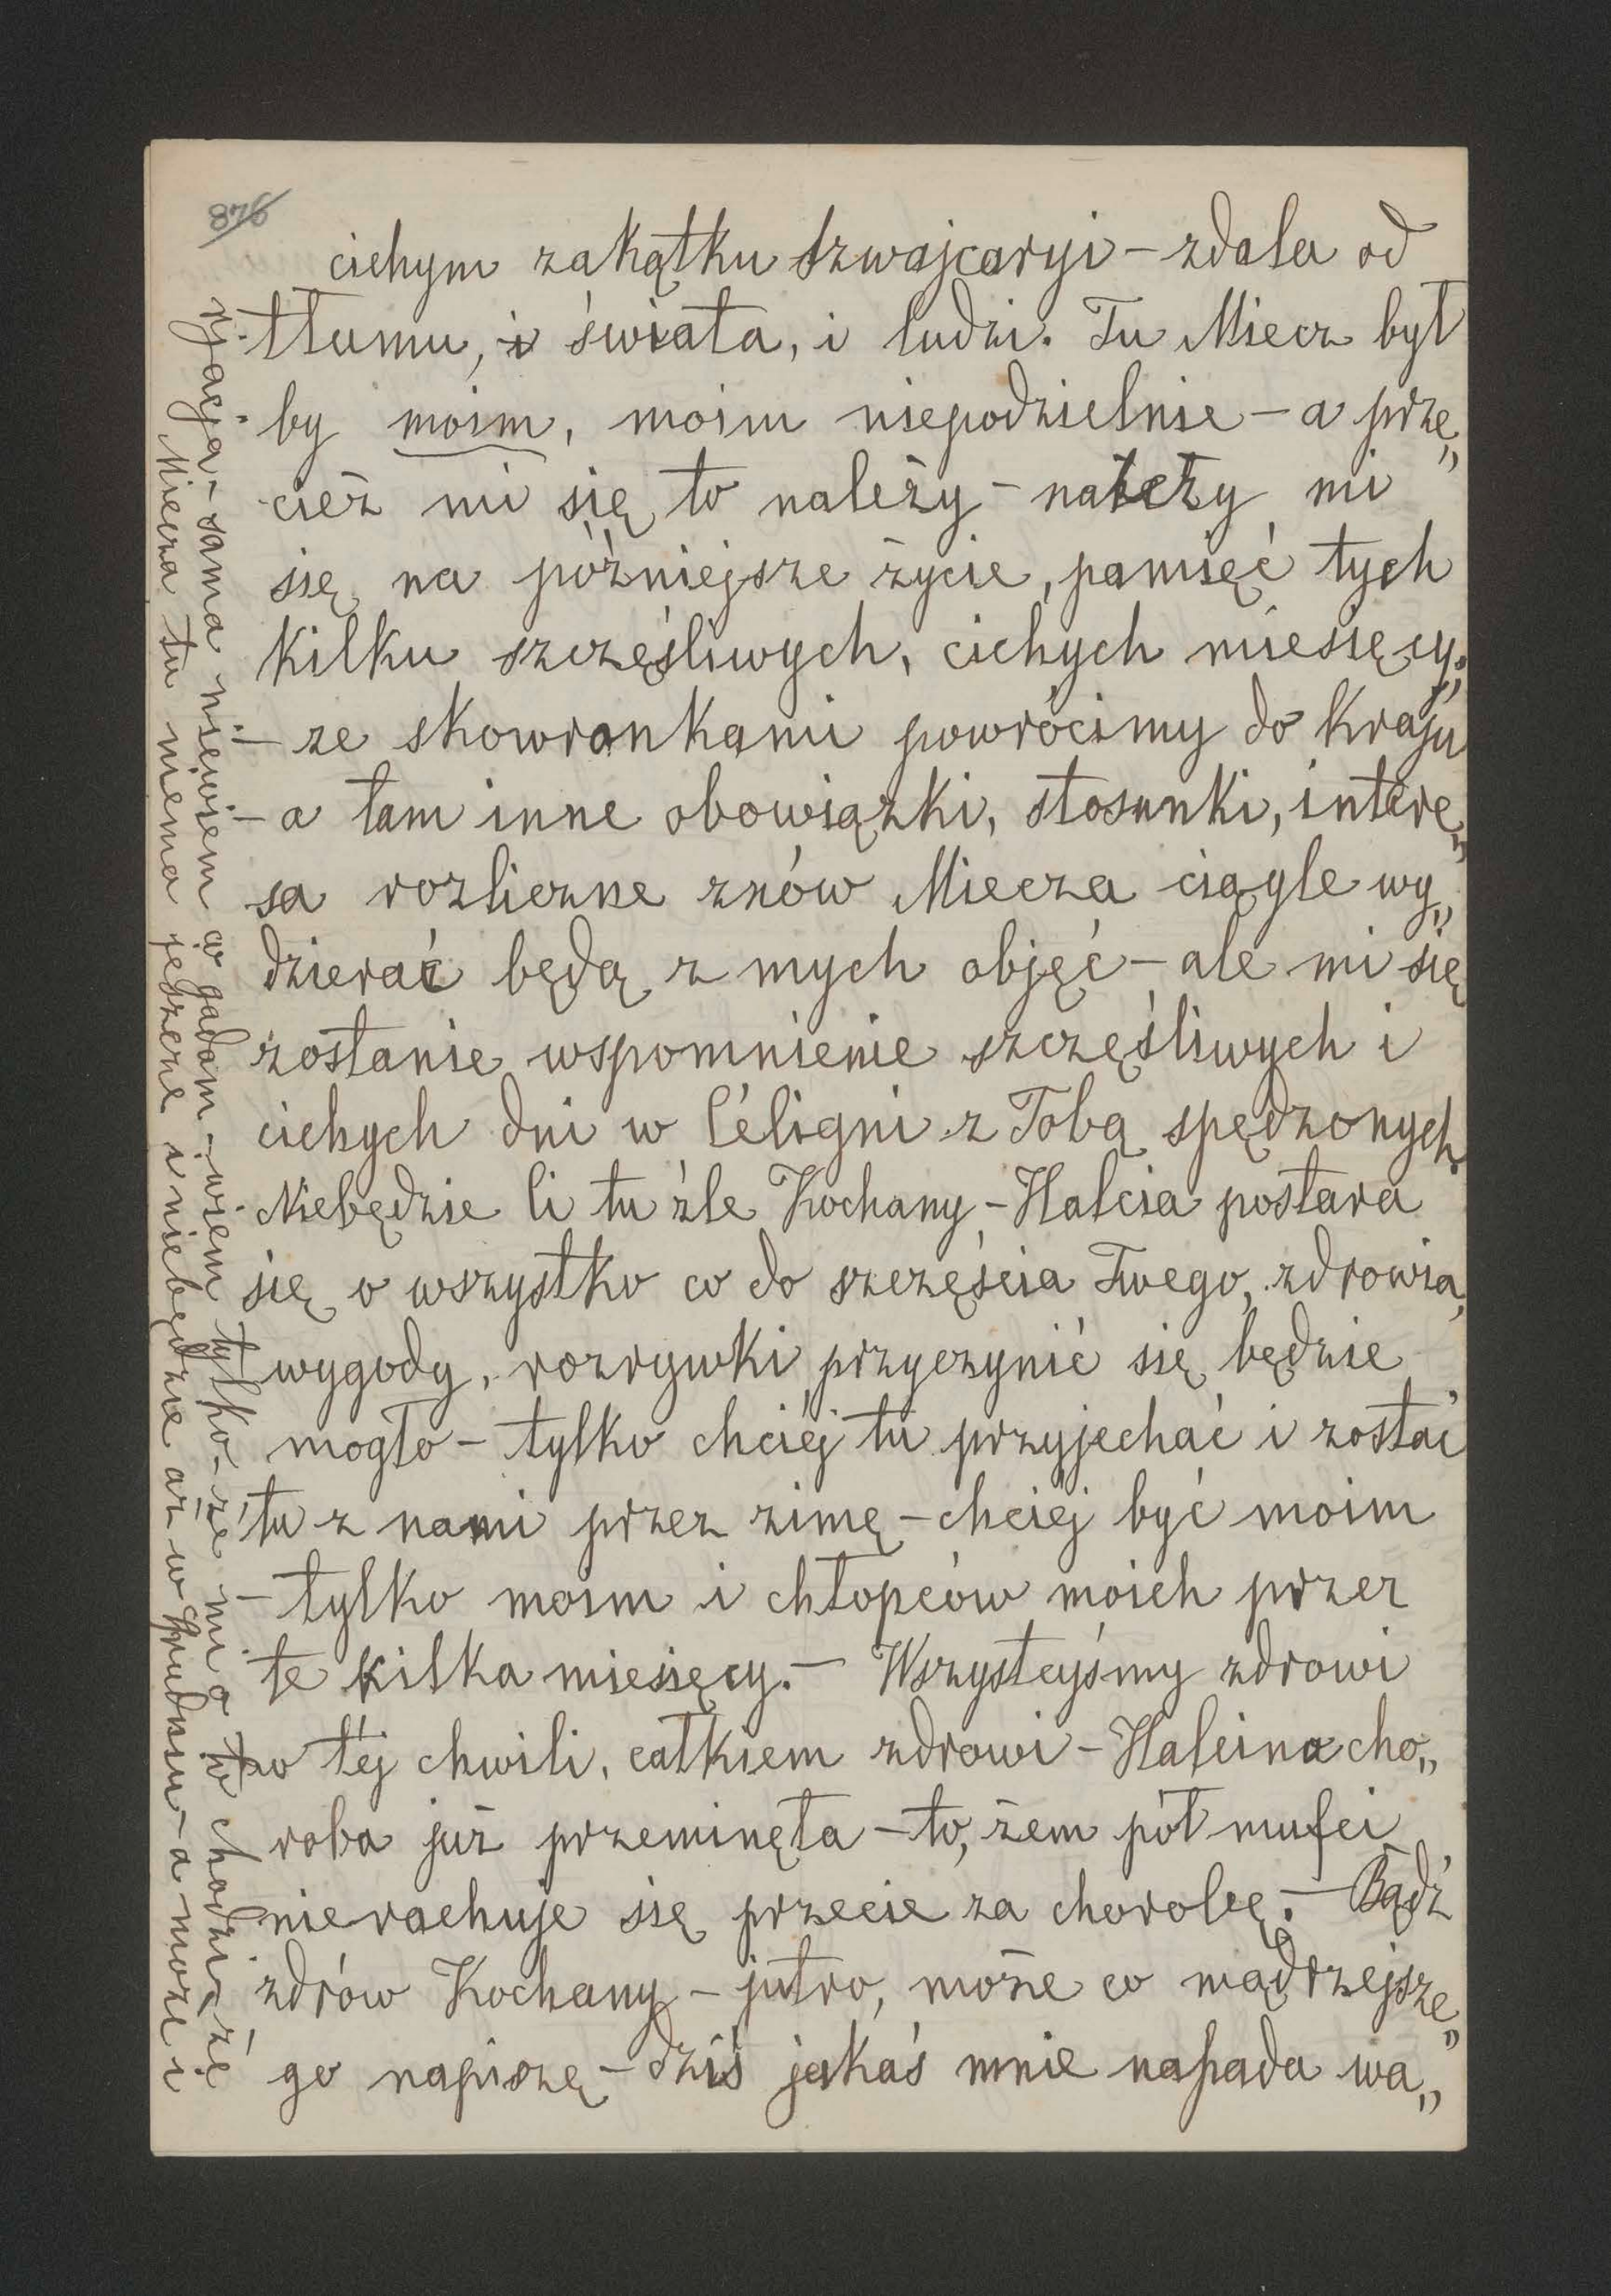 876
cichym zakątku Szwajcaryi – zdala od
tłumu, i świata, i ludzi. Tu Miecz był
by moim, moim niepodzielnie – a prze„
cież mi się to należy – należy mi
się na późniejsze życie, pamięć tych
kilku szczęśliwych, cichych miesięcy;
– ze skowronkami powrócimy do kraju
– a tam inne obowiązki, stosunki, intere„
sa rozliczne znów Miecza ciągle wy„
dzierać będą z mych objęć – ale mi się
zostanie wspomnienie szczęśliwych i
cichych dni w Céligni z Tobą spędzonych.
Niebędzie Ci tu źle Kochany – Halcia postara
się o wszystko co do szczęścia Twego, zdrowia,
wygody, rozrywki przyczynić się będzie
mogło – tylko chciéj tu przyjechać i zostać
tu z nami przez zimę – chciéj być moim
– tylko moim i chłopców moich przez
te kilka miesięcy. – Wszystcyśmy zdrowi
po téj chwili, całkiem zdrowi – Halcina cho„
roba już przeminęła – to, żem pół mufci
nierachuje się przecie za chorobę. – Bądź
zdrów Kochany – jutro, może co mądrzejsze„
go napiszę – dziś jakaś mnie napada wa„
ryjacja – sama niewiem co gadam – wiem tylko – że mi o to chodzi, że
Miecza tu niema jeszcze i niebędzie aż w Grudniu – a może i